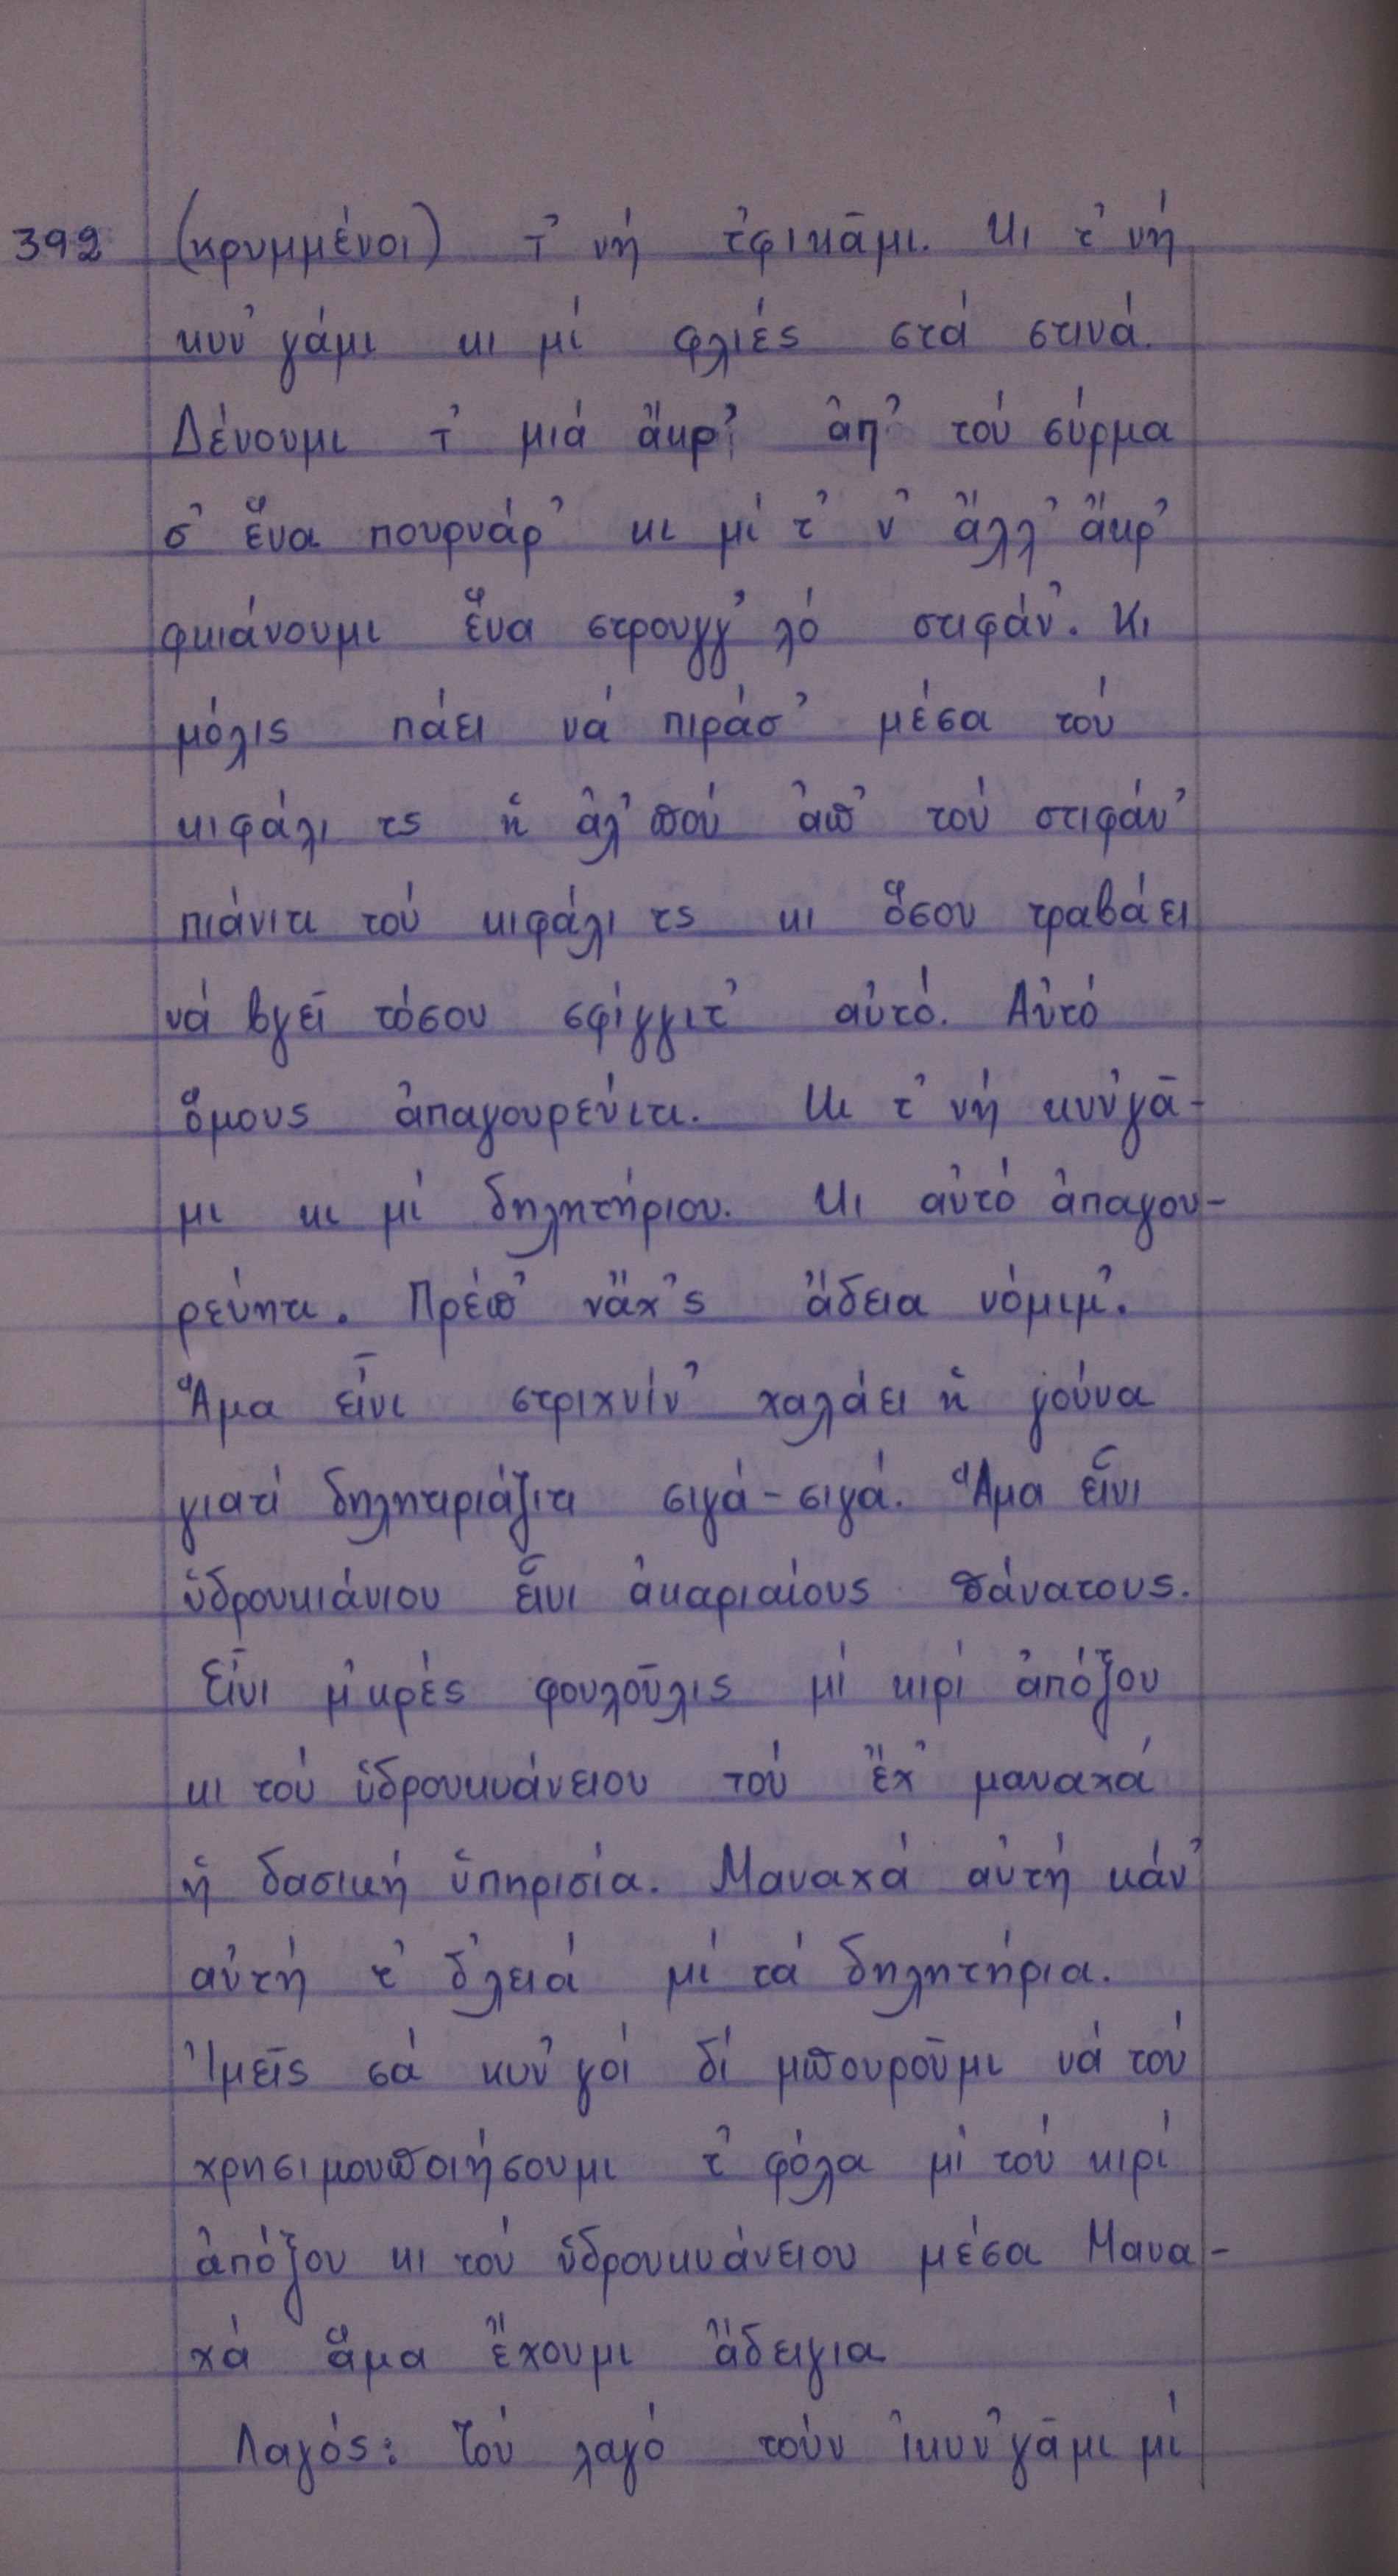 392 (κρυμμένοι) τ' νή τ'φικᾶμι. Κι τ' νή
κυν'γάμι κι μί φλιές στά στινά.
Δένουμι τ' μιά ἄκρ' ἀπ' τού σύρμα
σ' ἕνα πουρνάρ' κι μί τ' ν' ἄλλ' ἄκρ'
φκιάνουμι ἕνα στρουγγ'λό στιφάν'. Κι
μόλις πάει νά πιράσ' μέσα τού
κιφάλι τς ἡ ἀλ'πού ἀπ' τού στιφάν'
πιάνιτι τού κιφάλι τς κι ὅσου τραβάει
νά βγεῖ τόσου σφίγγιτ' αὐτό. Αὐτό
ὅμους ἀπαγουρεύιτι. Κι τ' νή κυν'γᾶ-
μι κι μί δηλητήριου. Κι αὐτό ἀπαγου-
ρεύητι. Πρέπ' νἄχ'ς ἄδεια νόμιμ'.
Ἅμα εἶνι στριχνίν' χαλάει ἡ γούνα
γιατί δηλητιριάζιτι σιγά-σιγά. Ἅμα εἶνι
ὑδρουκιάνιου εἶνι ἀκαριαίους θάνατους.
Εἶνι μ'κρές φουλοῦλις μί κιρί ἀπόξου
κι τού ὑδρουκυάνειου τού ἔχ' μαναχά
ἡ δασική ὑπηρισία. Μαναχά αὐτή κάν'
αὐτή τ' δ'λειά μί τά δηλητήρια.
Ἰμεῖς σά κυν'γοί δί μπουροῦμι νά τού
χρησιμουποιήσουμι τ' φόλα μί τού κιρί
ἀπόξου κι τού ὑδρουκυάνειου μέσα Μανα-
χά ἅμα ἔχουμι ἄδειγια
Λαγός: Τού λαγό τούν ἰκυν'γᾶμι μί